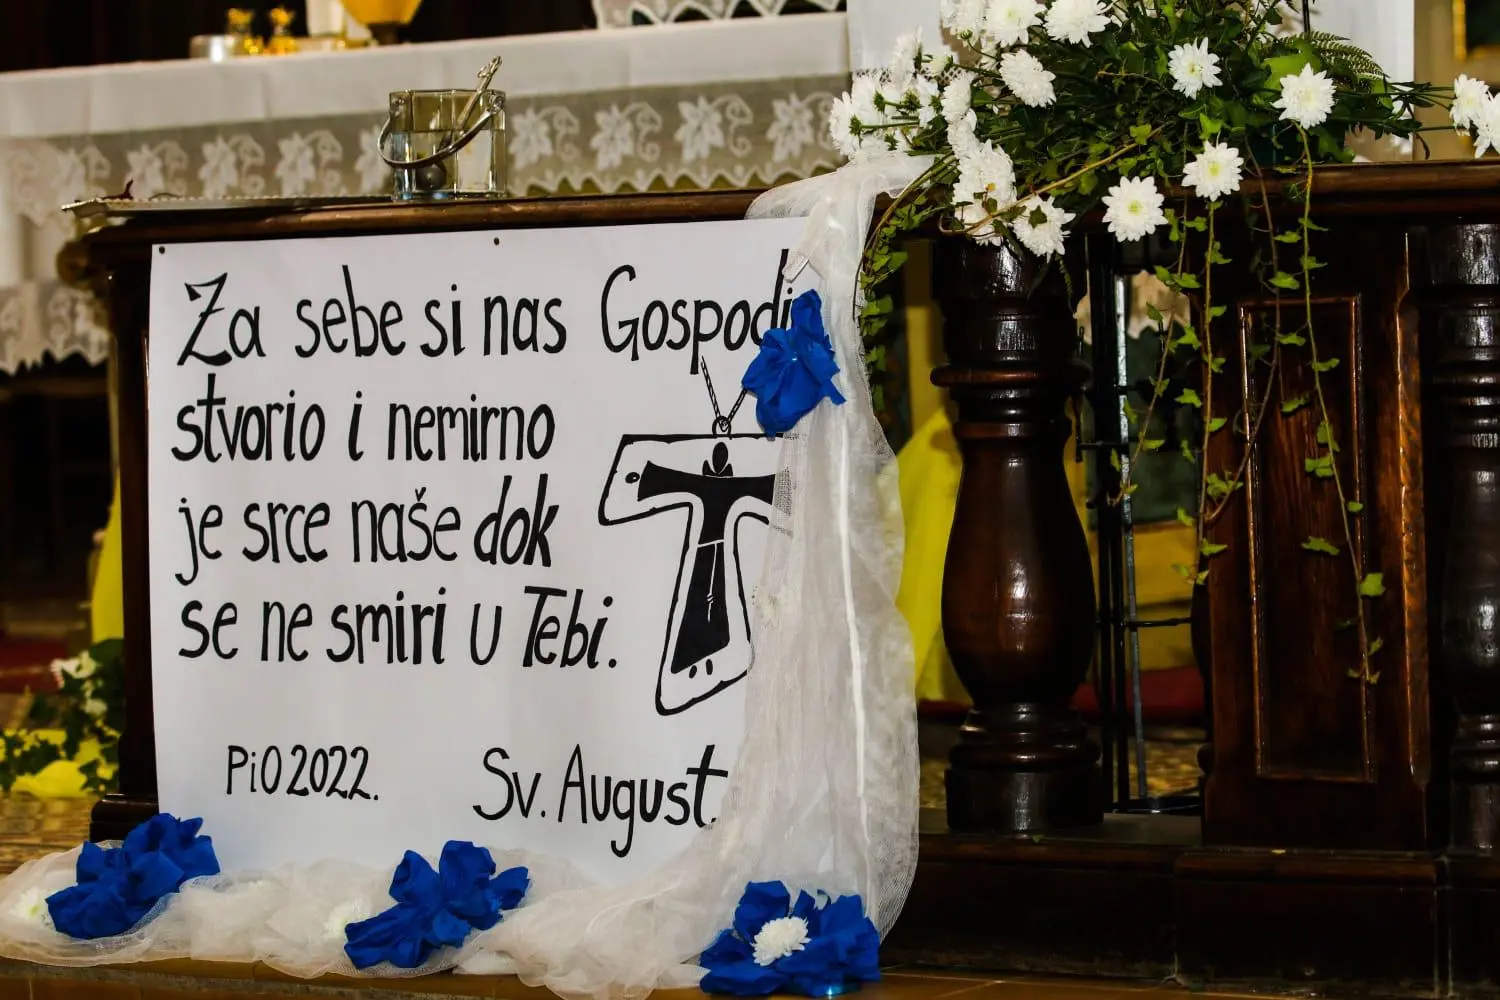 Za sebe si nas Gospodi
stvorio i nemirno
je srce naše dok
se ne smiri u Tebi.
PiO2022.
Sv. August.